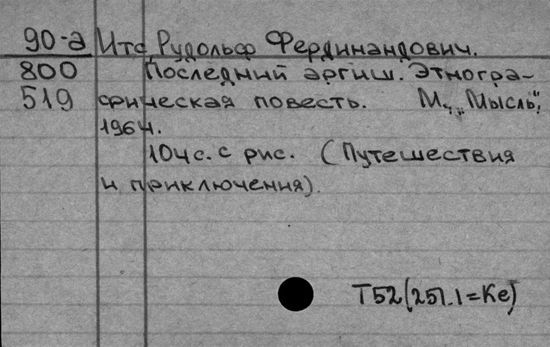 90-а Итс, Рудольф Фердинандович.
800 Последний аргиш. Этногра-
519 фическая повесть. М., „Мысль",
1964.
104с. с рис. (Путешествия
и приключения).
Т52(251.1=Ке)